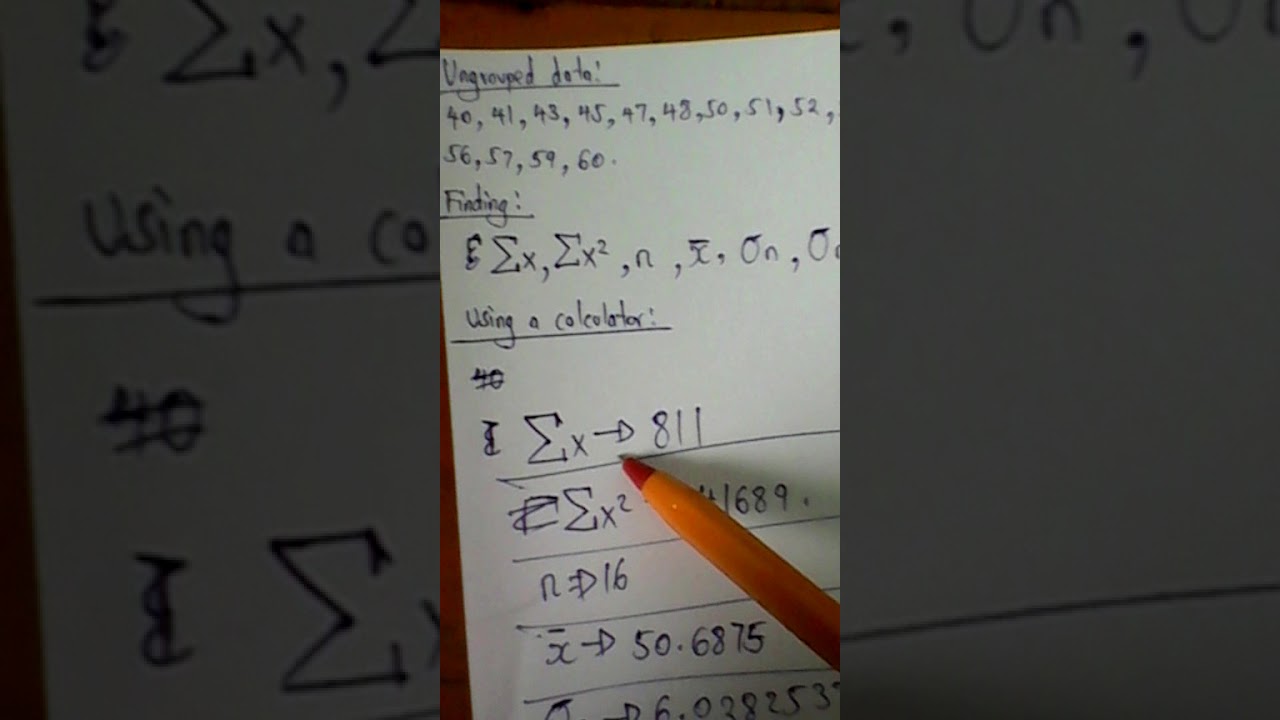 Ungrouped data:
40, 41, 43, 45, 47, 48, 50, 51, 52,
56, 57, 59, 60.
Finding:
Σx, Σx², n, x̄, σn, σn
Using a calculator:
40
Σx → 811
Σx² 41689.
n → 16
x̄ → 50.6875
σn → 6.0382537